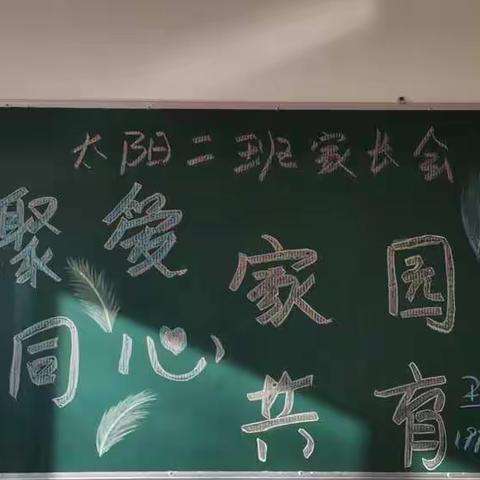 太阳二班家长会
聚爱
同心
家园
共有